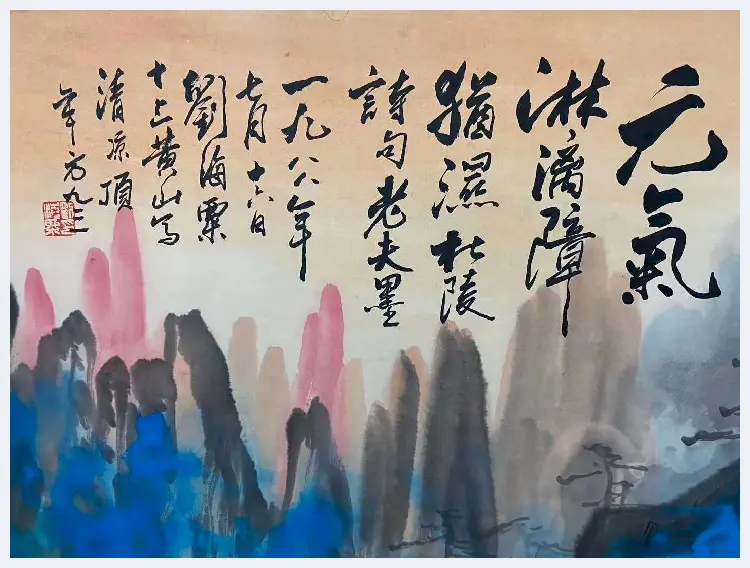 元氣
淋漓障
猶濕杜陵
詩句老夫墨
一九八八年
七月十六日
劉海粟
十上黄山寫
清凉頂
年方九三